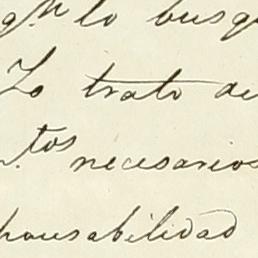 lo busq
Lo trato de
tos necesarios
ponsabilidad